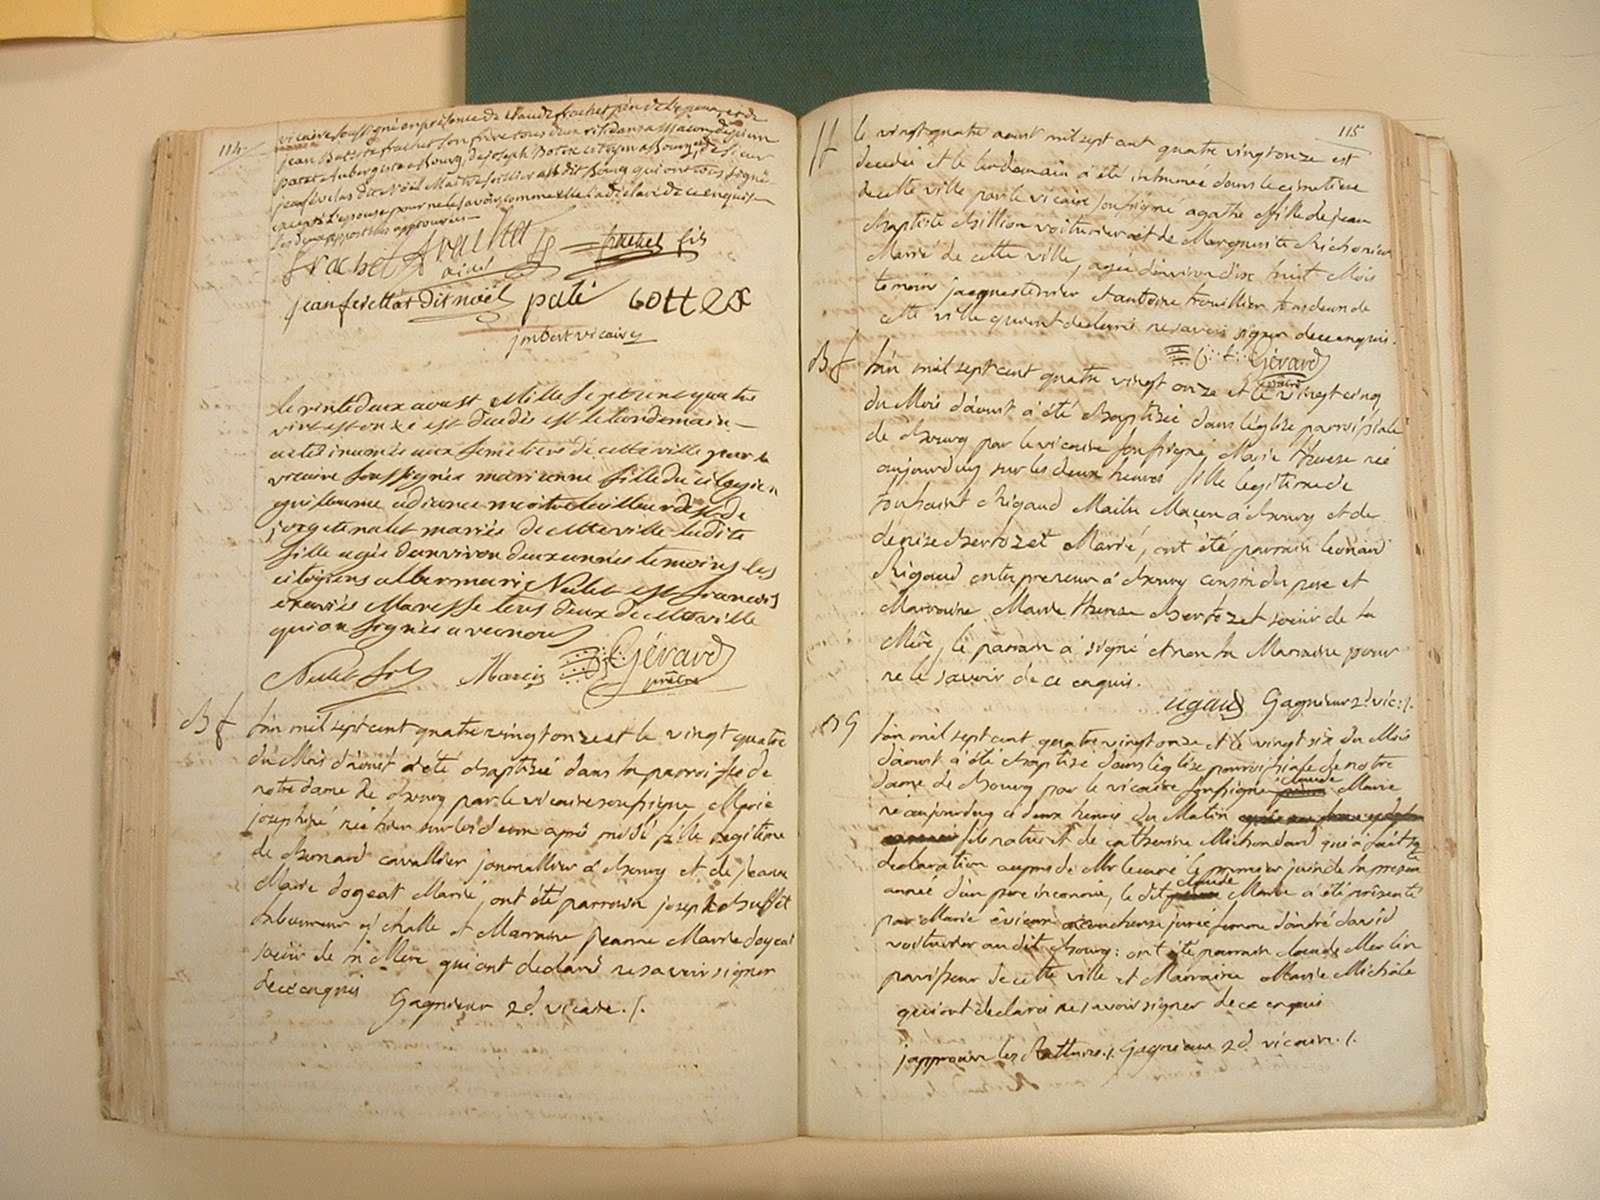 114.
vicaire soussigné en présence de Claude frachet père de l'epoux, et de
jean Batiste frachet son frère tous deux
patet aubergiste a Bourg, de joseph Bottex citoyen a Bourg, et de sieur
jean ferellas dit Noël Maitre sellier au dit Bourg qui ont tous signé
excepté l'epouse pour ne le savoir comme elle l'a déclaré de ce enquise
les deux apostilles approuvées
frachet frachet frachet fils
jean ferellas dit noël paté bottex
jmbert vicaire
le vinte deux aoust Mille sept cens quatre
vint est onze est décédés est le londemain
a etés inumés aux semetiere de cette ville par le
vicaire soussignés marianne fille du citoyen
guilleaume
marriés de cette ville ladite
fille agés danviron deux annés temoins les
citoyens Nalet est francois
Maresse tous deux de cette ville
qui on signés avec nous
Nalet Gérard
prêtre
B f
l'an mil sept cent quatre vingt onze et le vingt quatre
du Mois d'août a été Baptisée dans la parroisse de
notre dame de Bourg par le vicaire soussigné Marie
josephte née hier sur les deux aprés midi fille legitime
de Bernard cavallier journallier a Bourg et de jeanne
Marie dogeat Marié, ont été parrain joseph Buffet
laboureur à challe et Marraine jeanne Marie dogeat
soeur de la Mère qui ont declaré ne savoir signer
de ce enquis
Gagnieur 2d. vicaire ./.
115
le vingt quatre aout mil sept cent quatre vingt onze est
decedée et le lendemain a été inhumée dans le cimetiere
de cette ville par le vicaire soussigné agathe fille de jean
Baptiste Billion voiturier et de Marguerite Richonier
Mariés de cette ville, agée d'environ dix huit Mois
temoins jacques terrier et antoine trouillier tous deux de
cette ville qui ont declaré ne savoir signer de ce enquis.
Gérard
vicaire
B f
l'an mil sept cent quatre vingt onze et le vingt cinq
du Mois d'août a été Baptisée dans l'église parroissiale
de Bourg par le vicaire soussigné, Marie therese née
aujourduy sur les deux heures fille legitime de
toussaint Rigaud Maitre Maçon a Bourg et de
denise Bertozet Marié, ont été parrain leonard
Rigaud entrepreneur a Bourg cousin du pere et
Marraine Marie therese Bertozet soeur de la
Mère, le parrain a signé et non la Marraine pour
ne le savoir de ce enquis.
rigaud Gagnieur 2d. vic: ./.
B G
l'an mil sept cent quatre vingt onze et le vingt six du Mois
d'aoust a été Baptisé dans l'église parroissiale de notre
dame de Bourg par le vicaire soussigné claude Marie
né aujourduy a deux heures du Matin
fils naturel de catherine Michondard qui a fait sa
declaration aupres de Mr le curé le premier juin de la presente
année d'un pere inconnu, le dit claude Marie a été présenté
par Marie accoucheuse jurée femme d'andré david
voiturier au dit Bourg: ont été parrain claude Merlin
de cette ville et Marraine Marie Michale
qui ont declaré ne savoir signer de ce enquis
japprouve les Ratures ./. Gagnieur 2d. vicaire ./.